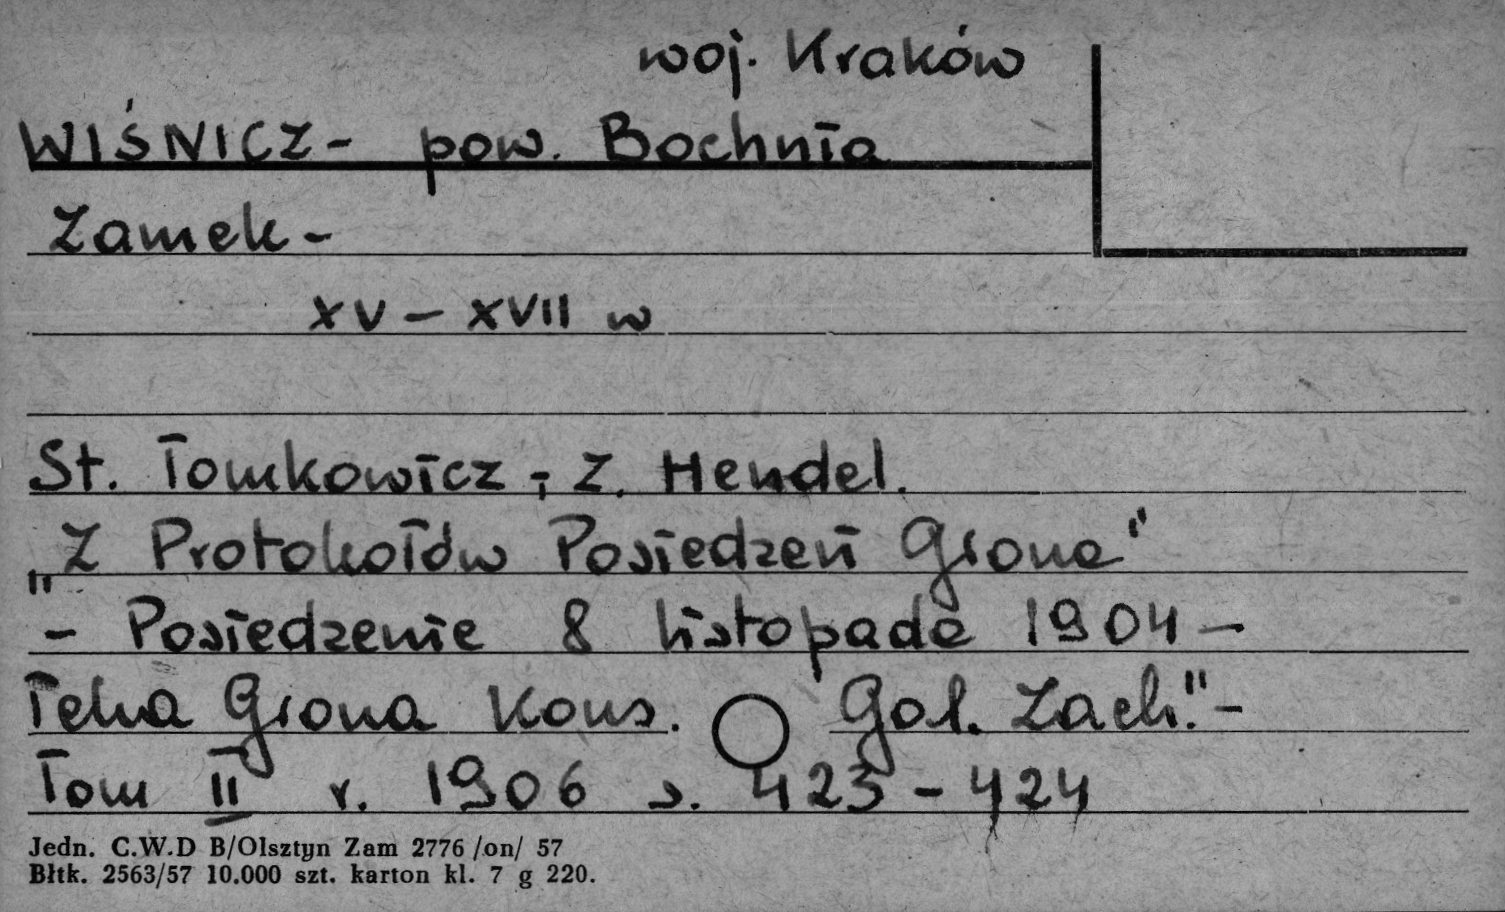 woj. Kraków
WIŚNICZ - pow. Bochnia
Zamek -
XV - XVII w
St. Tomkowicz i Z. Hendel.
„Z Protokołów Posiedzeń Grona"
- Posiedzenie 8 listopada 1904 -
Teka Grona Kons. Gal. Zach." -
Tom II r. 1906 s. 423 - 424
Jedn. C.W.D B/Olsztyn Zam 2776 /on/ 57
Błtk. 2563/57 10.000 szt. karton kl. 7 g 220.